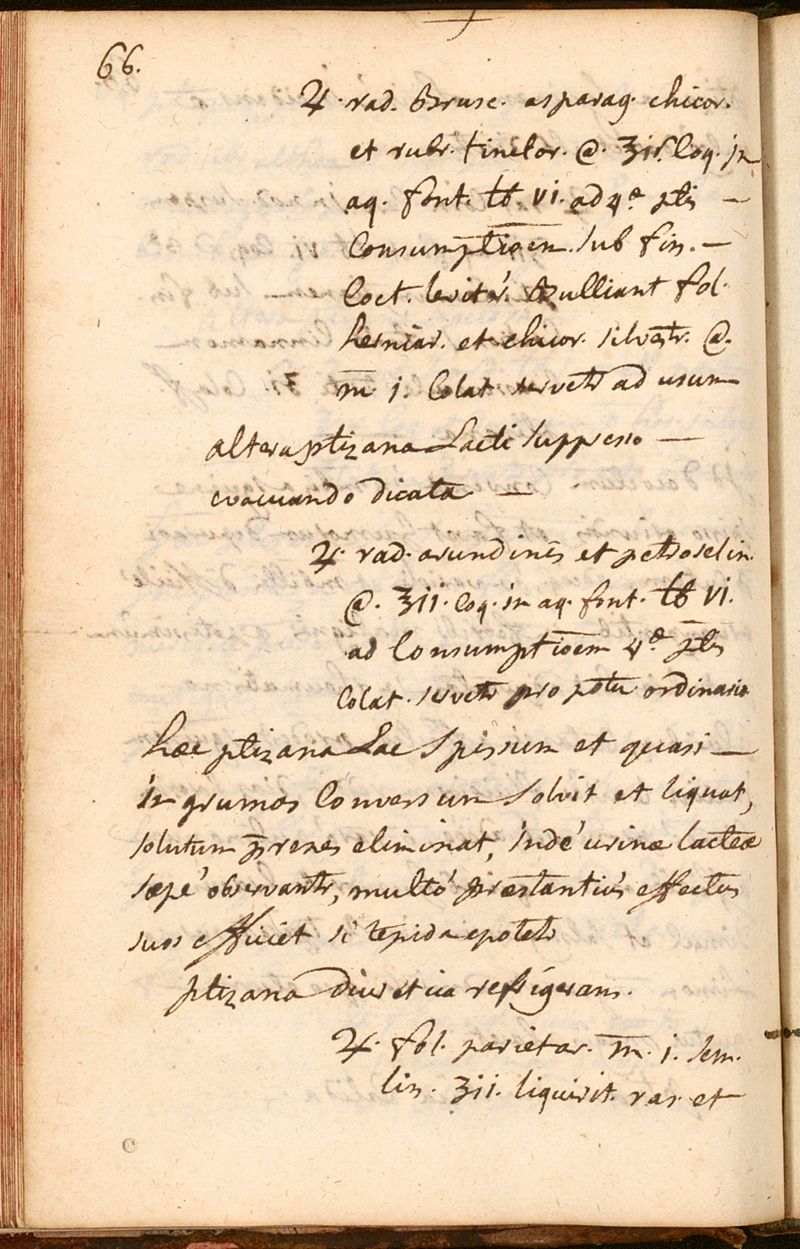 66.
♃. rad. Brusc. asparag. chicor.
et rubr. tinctor. @. ʒiß. Coq. in
aq. font. ℔ vi. ad 4ᵃ ptis —
Consumptioem. sub fin. —
Coct. levitèr. Bulliant fol.
herniar. et chicor. silvestr. @.
m̄ j. Colat servetr ad usum
altera ptizana Lacti suppresso —
evacuando dicata —
♃. rad. arundinis et petroselin.
@. ʒii. coq. in aq. font. ℔ vi.
ad Consumptioem 4ᵃ ptis
Colat. servetr pro potu ordinario
hæc ptizana Lac spissum et quasi —
in grumos Conversum solvit et liquat,
solutum p renes eliminat, indè urinæ lacteæ
sæpè observantr, multò præstantiùs effectus
suos efficiet si tepida epotetr
ptizana diuretica refrigerans.
♃. fol. parietar. m̄. j. sem.
lin. ʒii. liquirit. ras. et